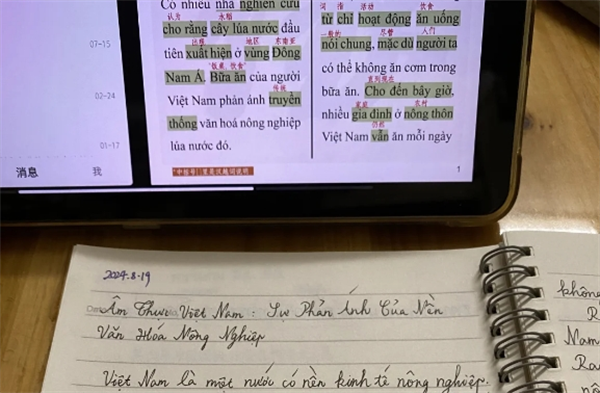 07-15
02-24
01-17
消息
我
Có nhiều nhà nghiên cứu
认为 水稻
cho rằng cây lúa nước đầu
出现 地区 东南亚
tiên xuất hiện ở vùng Đông
"饭桌 饮食"
Nam Á. Bữa ăn của người
传统
Việt Nam phản ánh truyền
thống văn hoá nông nghiệp
lúa nước đó.
词 指 活动 饮食
từ chỉ hoạt động ăn uống
一般的 尽管 人们
nói chung, mặc dù người ta
có thể không ăn cơm trong
直到现在
bữa ăn. Cho đến bây giờ,
家庭 农村
nhiều gia đình ở nông thôn
仍然
Việt Nam vẫn ăn mỗi ngày
1
2024.8.19
Ẩm Thực Việt Nam: Sự Phản Ánh Của Nền
Văn Hóa Nông Nghiệp
Việt Nam là một nước có nền kinh tế nông nghiệp.
không
Ra
Nam
Ra